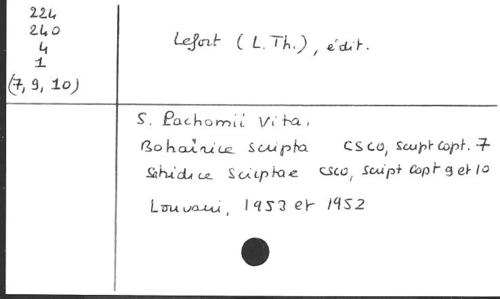 224
240
4
1
(7, 9, 10)
Lefort (L. Th.), édit.
S. Pachomii Vita.
Bohairice scripta CSCO, script copt. 7
Sahidice scriptae CSCO, script copt 9 et 10
Louvain, 1953 et 1952